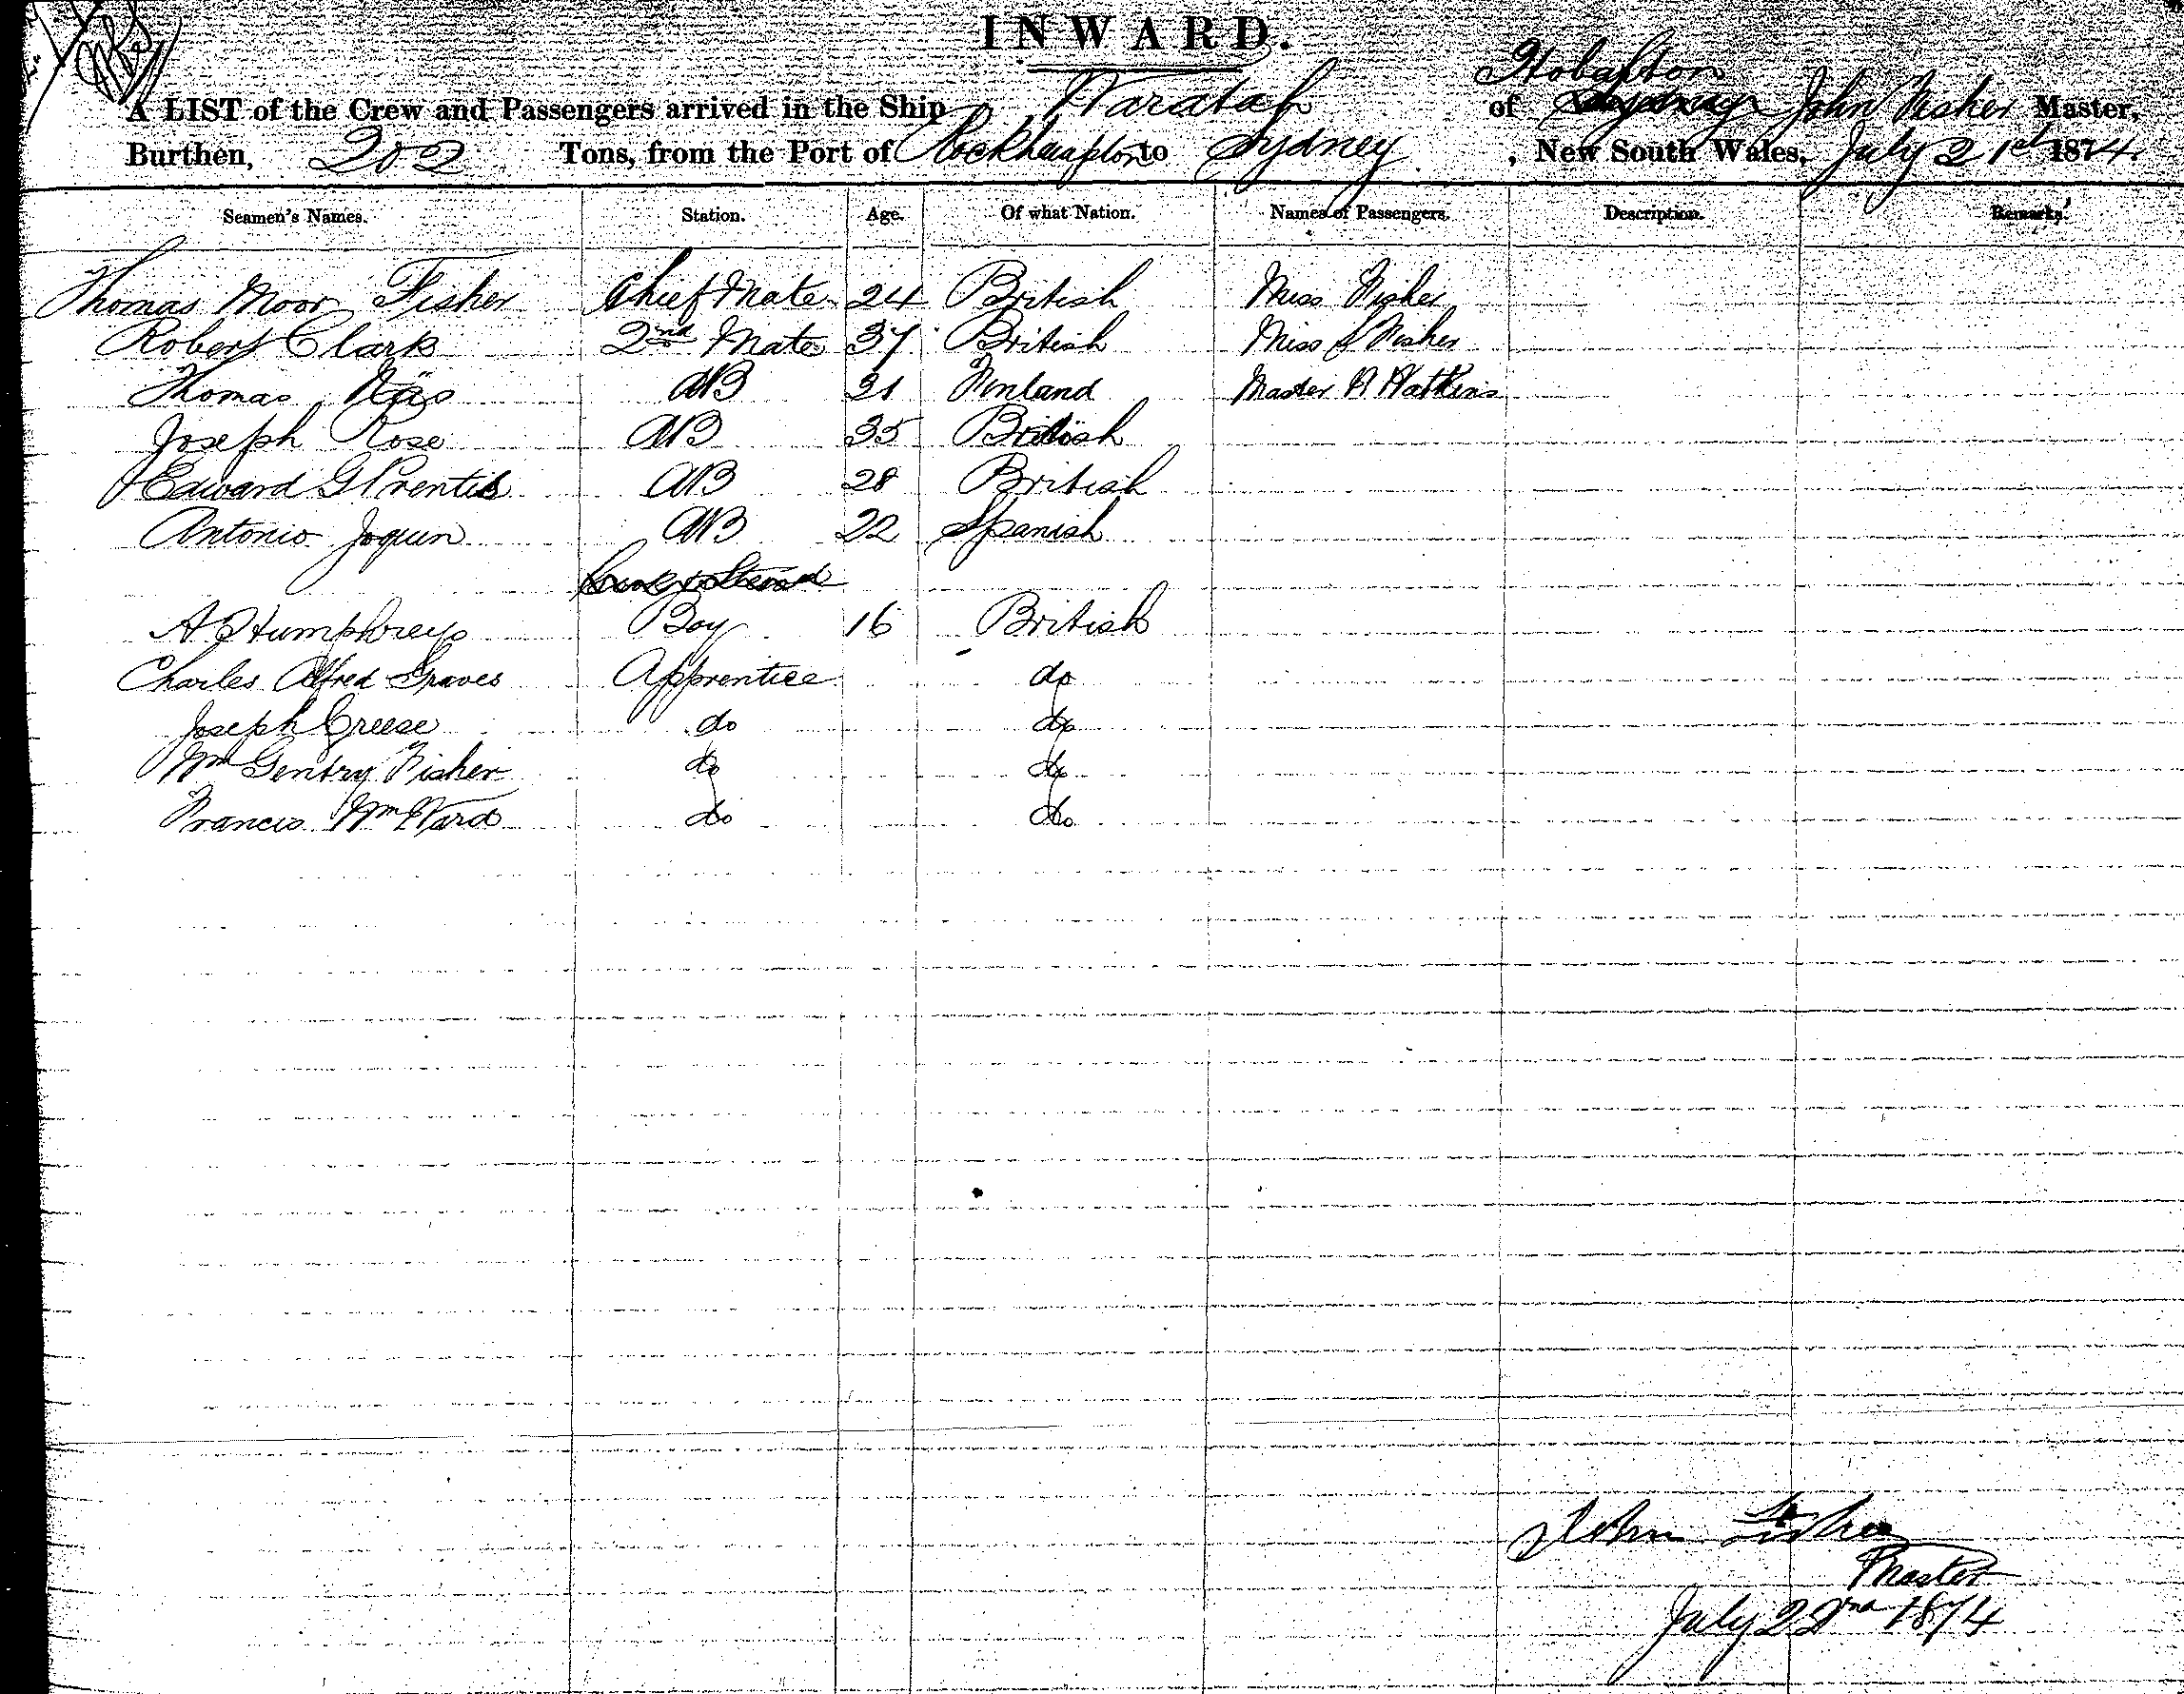 INWARD.
A LIST of the Crew and Passengers arrived in the Ship Waratah of Hobarton John Fisher Master,
Burthen, 202 Tons, from the Port of Rockhampton to Sydney, New South Wales, July 21st 1874.
Seamen's Names. Station. Age. Of what Nation. Names of Passengers. Description. Remarks.
Thomas Moor Fisher Chief Mate 24 British Miss Fisher
Robert Clark 2nd Mate 37 British Miss Fisher
Thomas AB 31 Finland Master Watkins
Joseph Rose AB 35 British
Edward G Prentis AB 28 British
Antonio Joquin AB 22 Spanish
Cook & Steward
A Humphreys Boy 16 British
Charles Alfred Graves Apprentice do
Joseph Creese do do
Wm Gentry Fisher do do
Francis Wm Ward do do
John Fisher
Master
July 22nd 1874